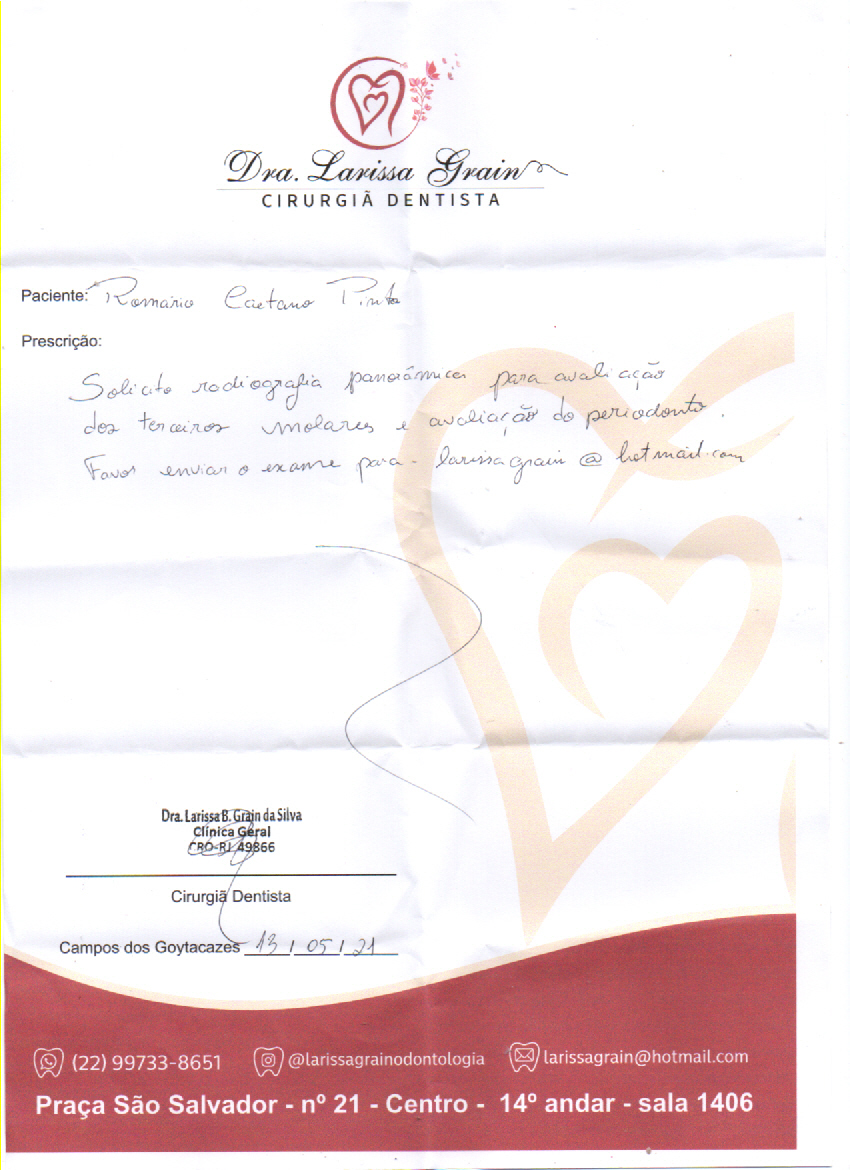 Dra. Larissa Grain
CIRURGIÃ DENTISTA
Paciente: Romário Caetano Pinto
Prescrição:
Solicito radiografia panorâmica para avaliação
dos terceiros molares e avaliação do periodonto.
Favor enviar o exame para - larissagrain@hotmail.com
Dra. Larissa B. Grain da Silva
Clínica Geral
CRO-RJ 49866
Cirurgiã Dentista
Campos dos Goytacazes 13 / 05 / 21
(22) 99733-8651 @larissagrainodontologia larissagrain@hotmail.com
Praça São Salvador - nº 21 - Centro - 14º andar - sala 1406